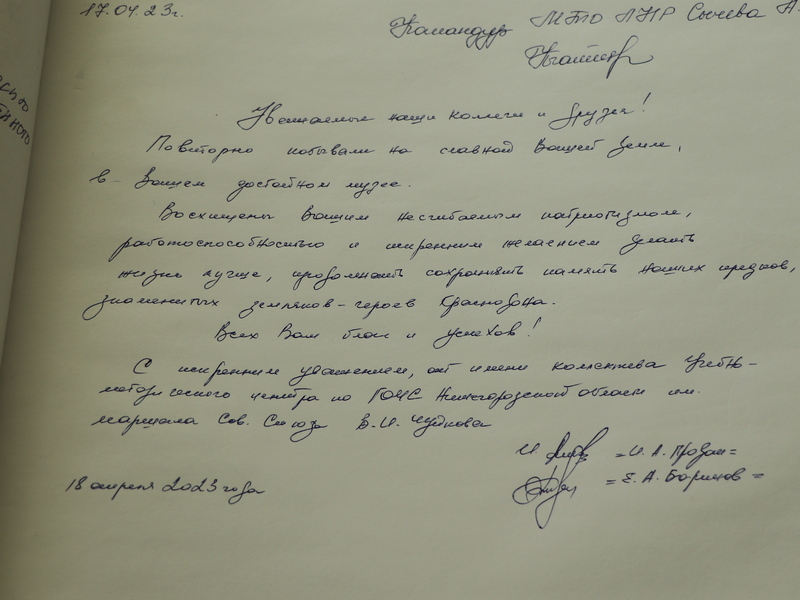 17.04.23г.
Командир МТО ЛНР Сычева А.
Уважаемые наши коллеги и друзья!
Повторно побывали на славной Вашей земле,
в Вашем достойном музее.
Восхищены Вашим несгибаемым патриотизмом,
работоспособностью и искренним желанием делать
жизнь лучше, продолжать сохранять память наших предков,
знаменитых земляков-героев Краснодона.
Всех Вам благ и успехов!
С искренним уважением, от имени коллектива Учебно-
методического центра по ГОЧС Нижегородской области им.
маршала Сов. Союза В.И. Чуйкова
=И.А. Прован=
=Е.А. Баринов=
18 апреля 2023 года